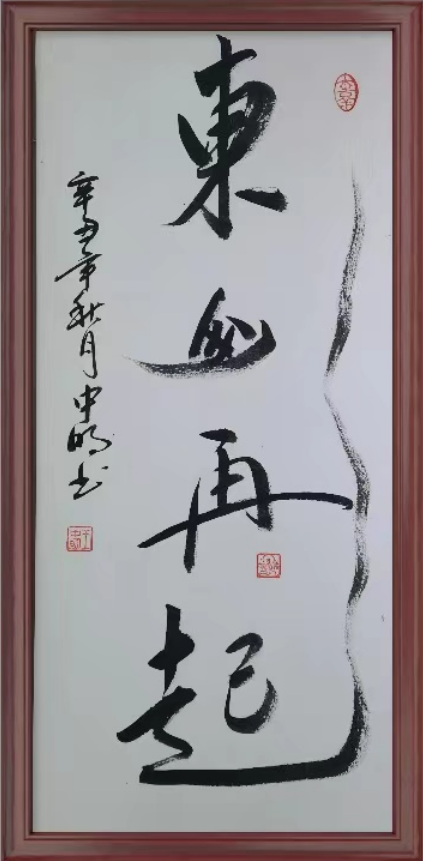 東山再起
辛丑年秋月中书